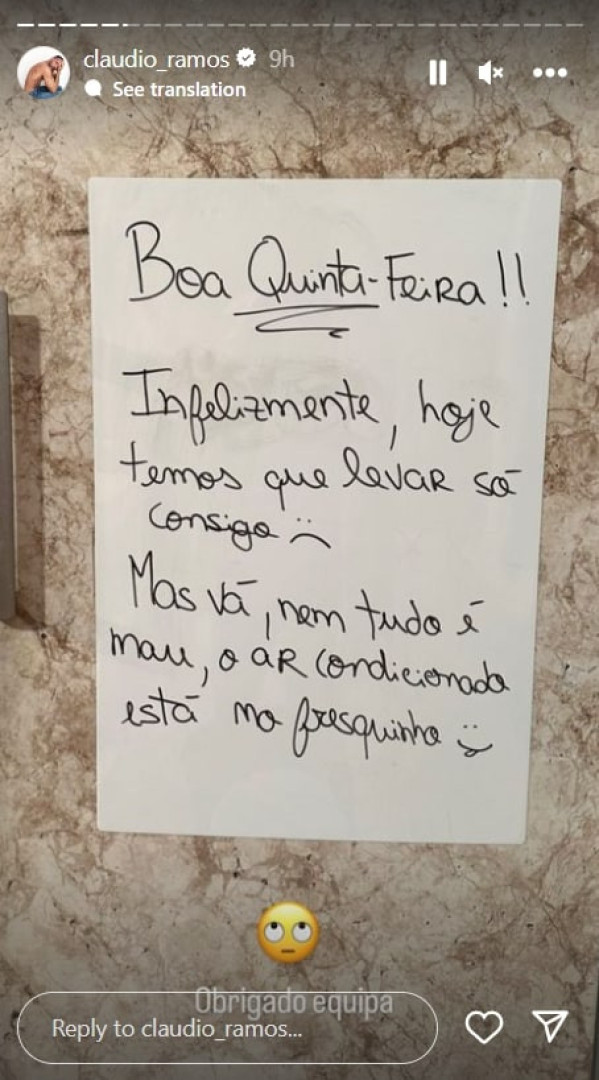 claudio_ramos 9h
See translation
Boa Quinta-Feira!!
Infelizmente, hoje
temos que levar só
consigo :(
Mas vá, nem tudo é
mau, o ar condicionado
está no fresquinho :)
🙄
Obrigado equipa
Reply to claudio_ramos...